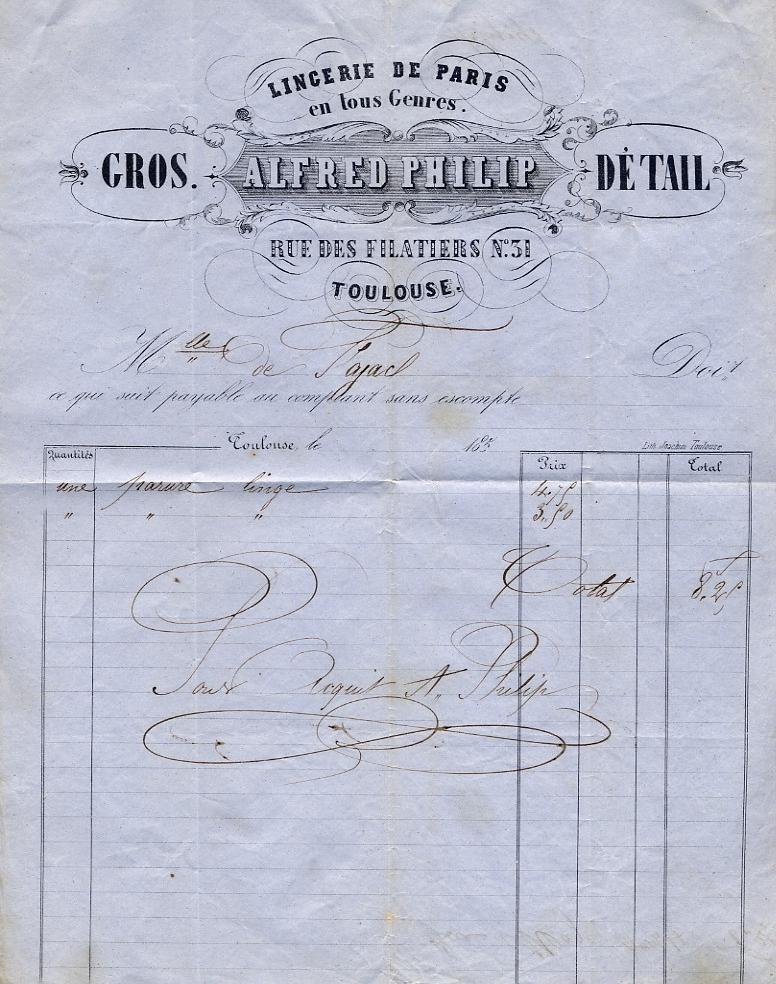 LINGERIE DE PARIS
en tous Genres.
GROS. ALFRED PHILIP DÉTAIL
RUE DES FILATIERS N.º 31
TOULOUSE.
Mlle de Pajac Doit
ce qui suit payable au comptant sans escompte
Toulouse, le 185
Lith. Joachim Toulouse
Quantités Prix Total
une parure linge 4.75
" " " 3.50
Total 8.25
Pour Acquit A. Philip